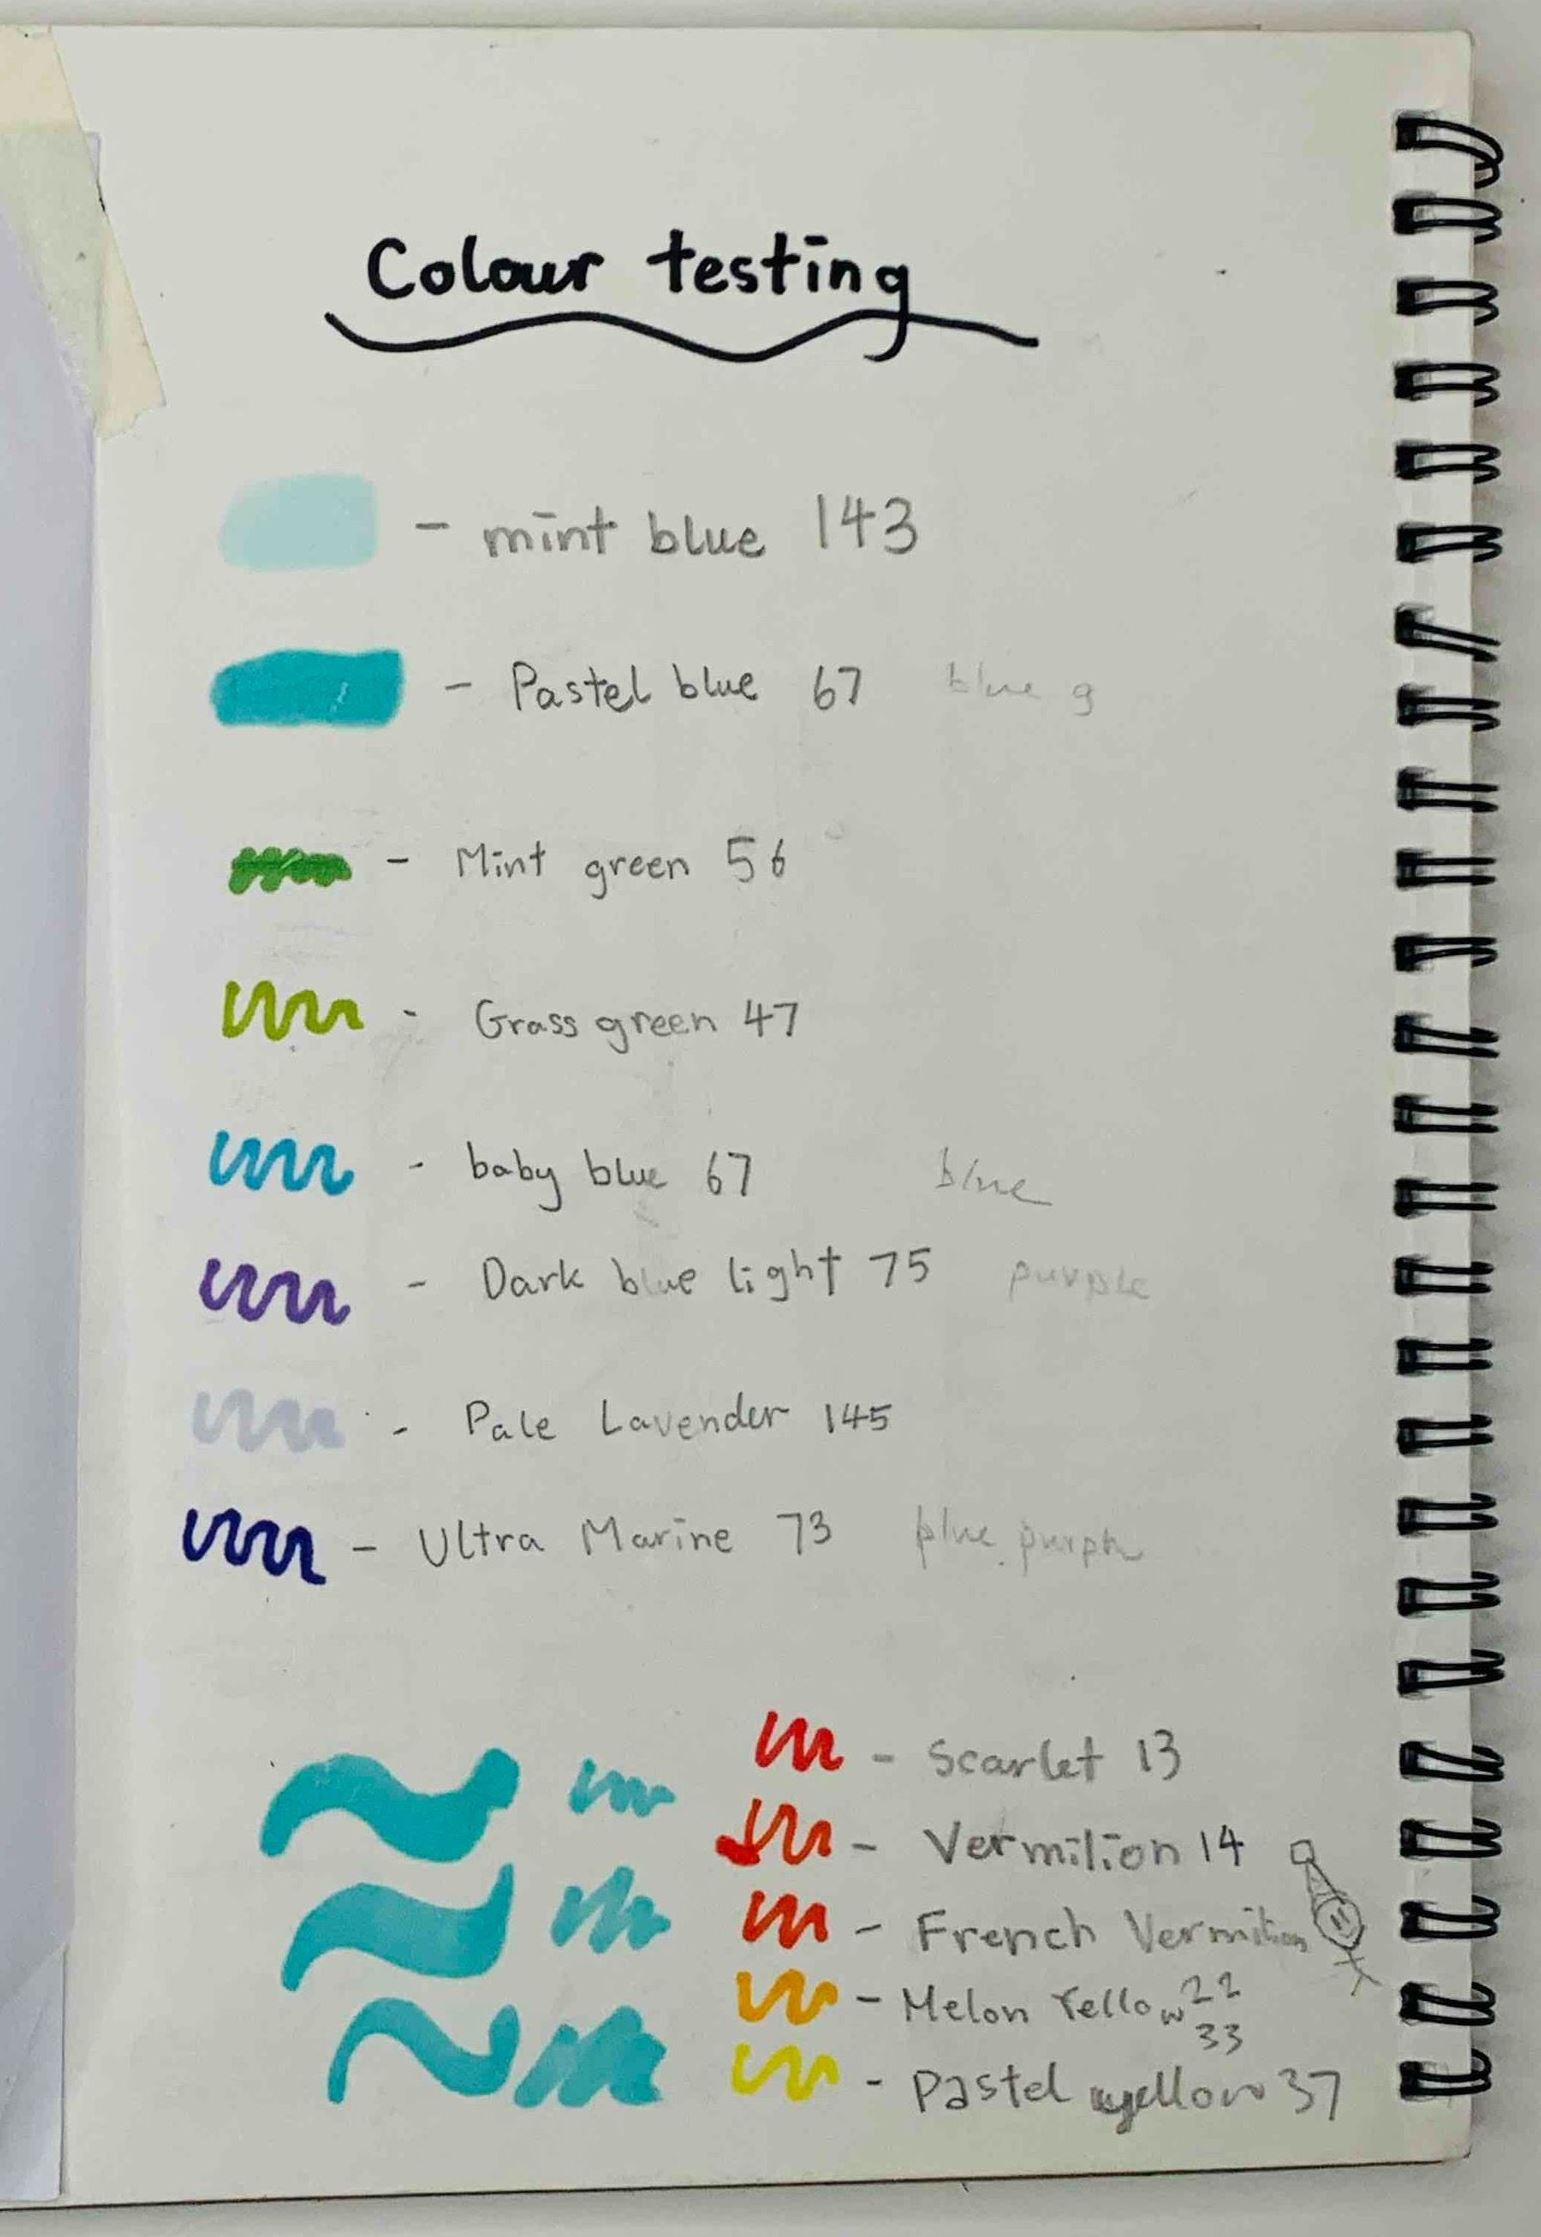 Colour testing
- mint blue 143
- Pastel blue 67 blue g
- Mint green 56
- Grass green 47
- baby blue 67 blue
- Dark blue light 75 purple
- Pale Lavender 145
- Ultra Marine 73 blue purple
- Scarlet 13
- Vermilion 14
- French Vermilion
- Melon Yellow 22
33
- Pastel yellow 37